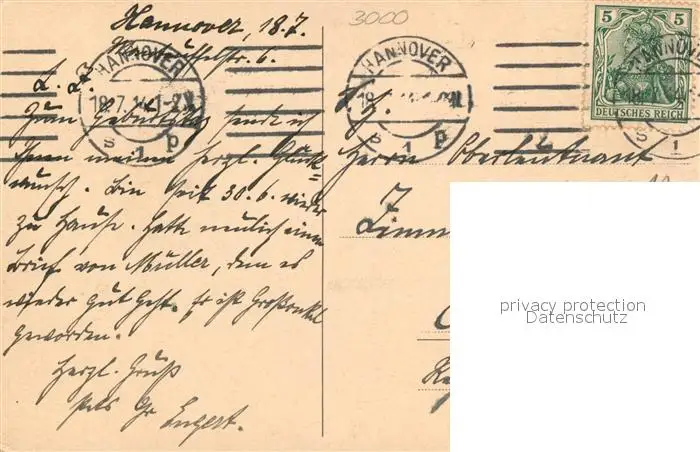 Hannover, 18.7.
6.
3000
HANNOVER
18.7.14.1-2N.
s 1 p
HANNOVER
18
s 1 p
5 5
DEUTSCHES REICH
HANNOVER
s 1
L. L.
Zum Geburtstag sende ich
Ihnen meinen herzl. Glück=
wunsch. Bin seit 30.6. wieder
zu Hause. Hatte neulich einen
Brief von Müller, dem es
wieder gut geht. Er ist Großonkel
geworden.
Herzl. Gruß
Engert.
Herrn Oberleutnant
privacy protection
Datenschutz